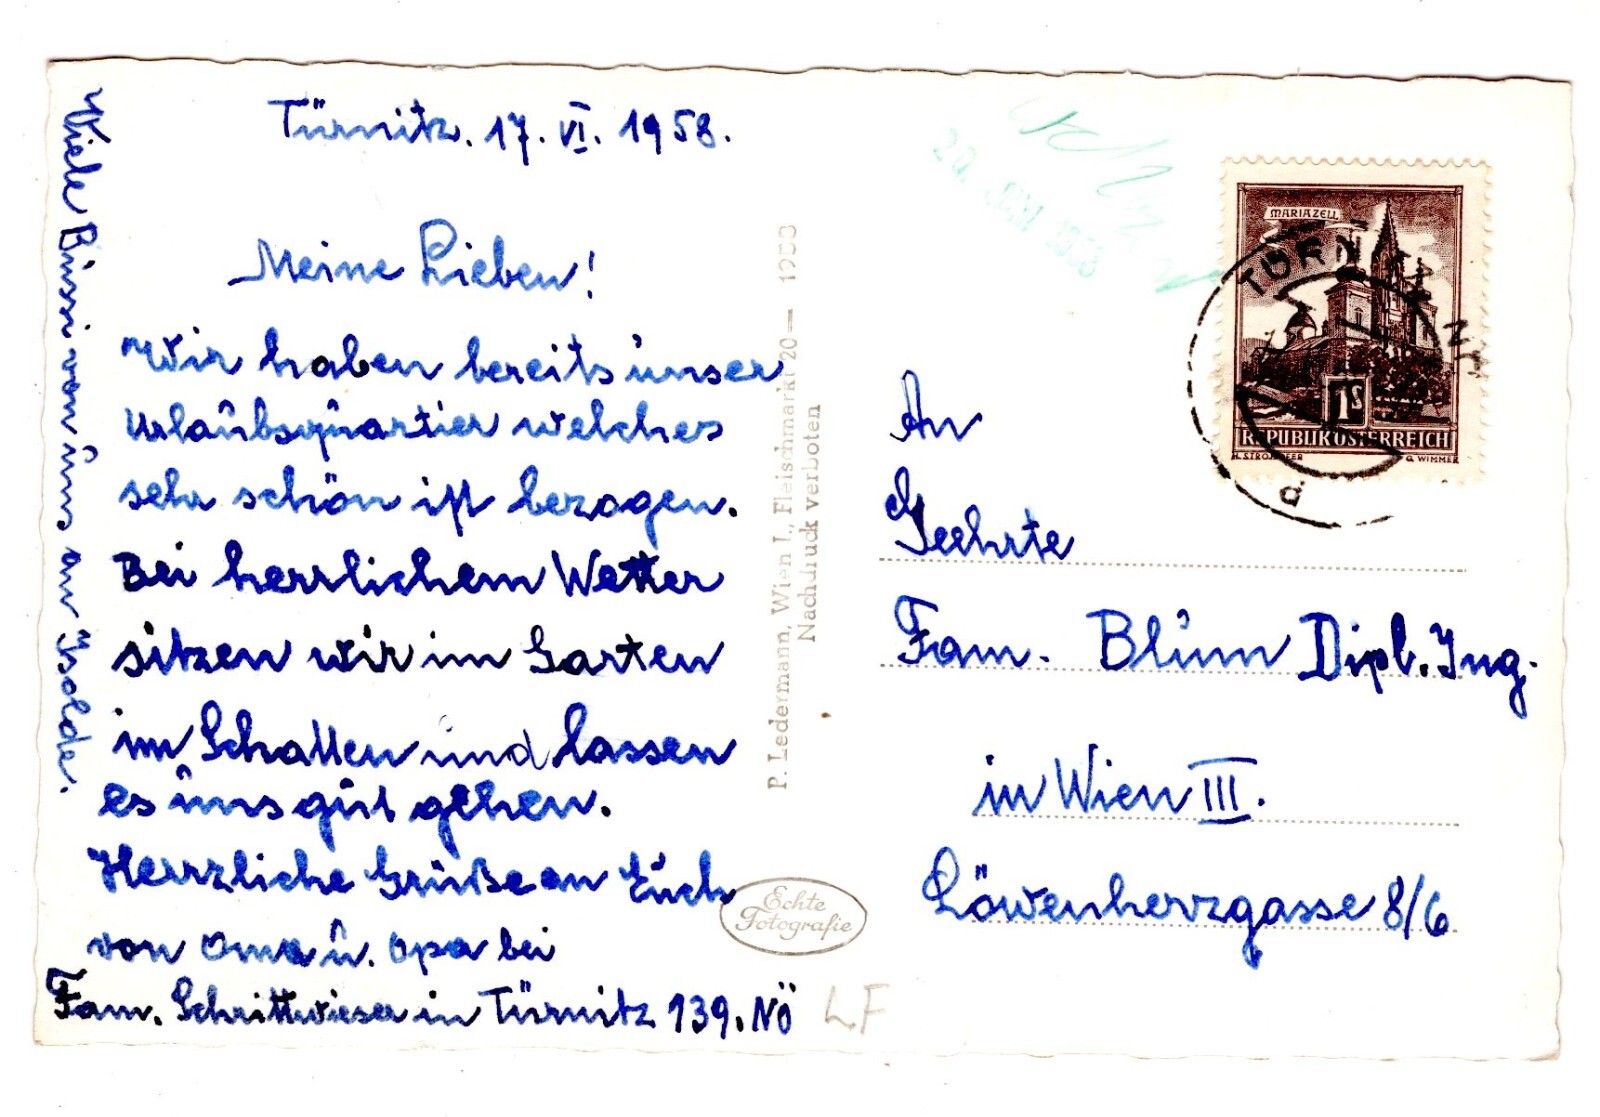 Türnitz. 17. VI. 1958.
Meine Lieben!
Wir haben bereits unser
Urlaubsquartier welches
sehr schön ist bezogen.
Bei herrlichem Wetter
sitzen wir im Garten
im Schatten und lassen
es uns gut gehen.
Herrzliche Grüße an Euch
von Oma u. Opa bei
Fam. Schrittwieser in Türnitz 139. NÖ
Viele Bussi von uns an Isolde.
P. Ledermann, Wien I., Fleischmarkt 20 — 1953
Nachdruck verboten
Echte
Fotografie
LF
20. JUNI 1958
MARIAZELL
1S
REPUBLIK ÖSTERREICH
G. WIMMER
TÜRNITZ
An
Geehrte
Fam. Blum Dipl. Ing.
in Wien III.
Löwenherzgasse 8/6